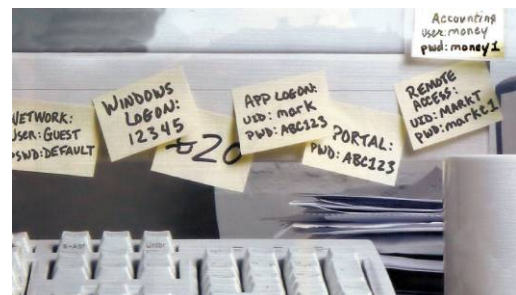 Accounting
User: money
pwd: money1
NETWORK:
User: GUEST
PSWD: DEFAULT
WINDOWS
LOGON:
12345
20
APP LOGON:
UID: mark
PWD: ABC123
PORTAL:
PWD: ABC123
REMOTE
ACCESS:
UID: MARKT
PWD: markt1